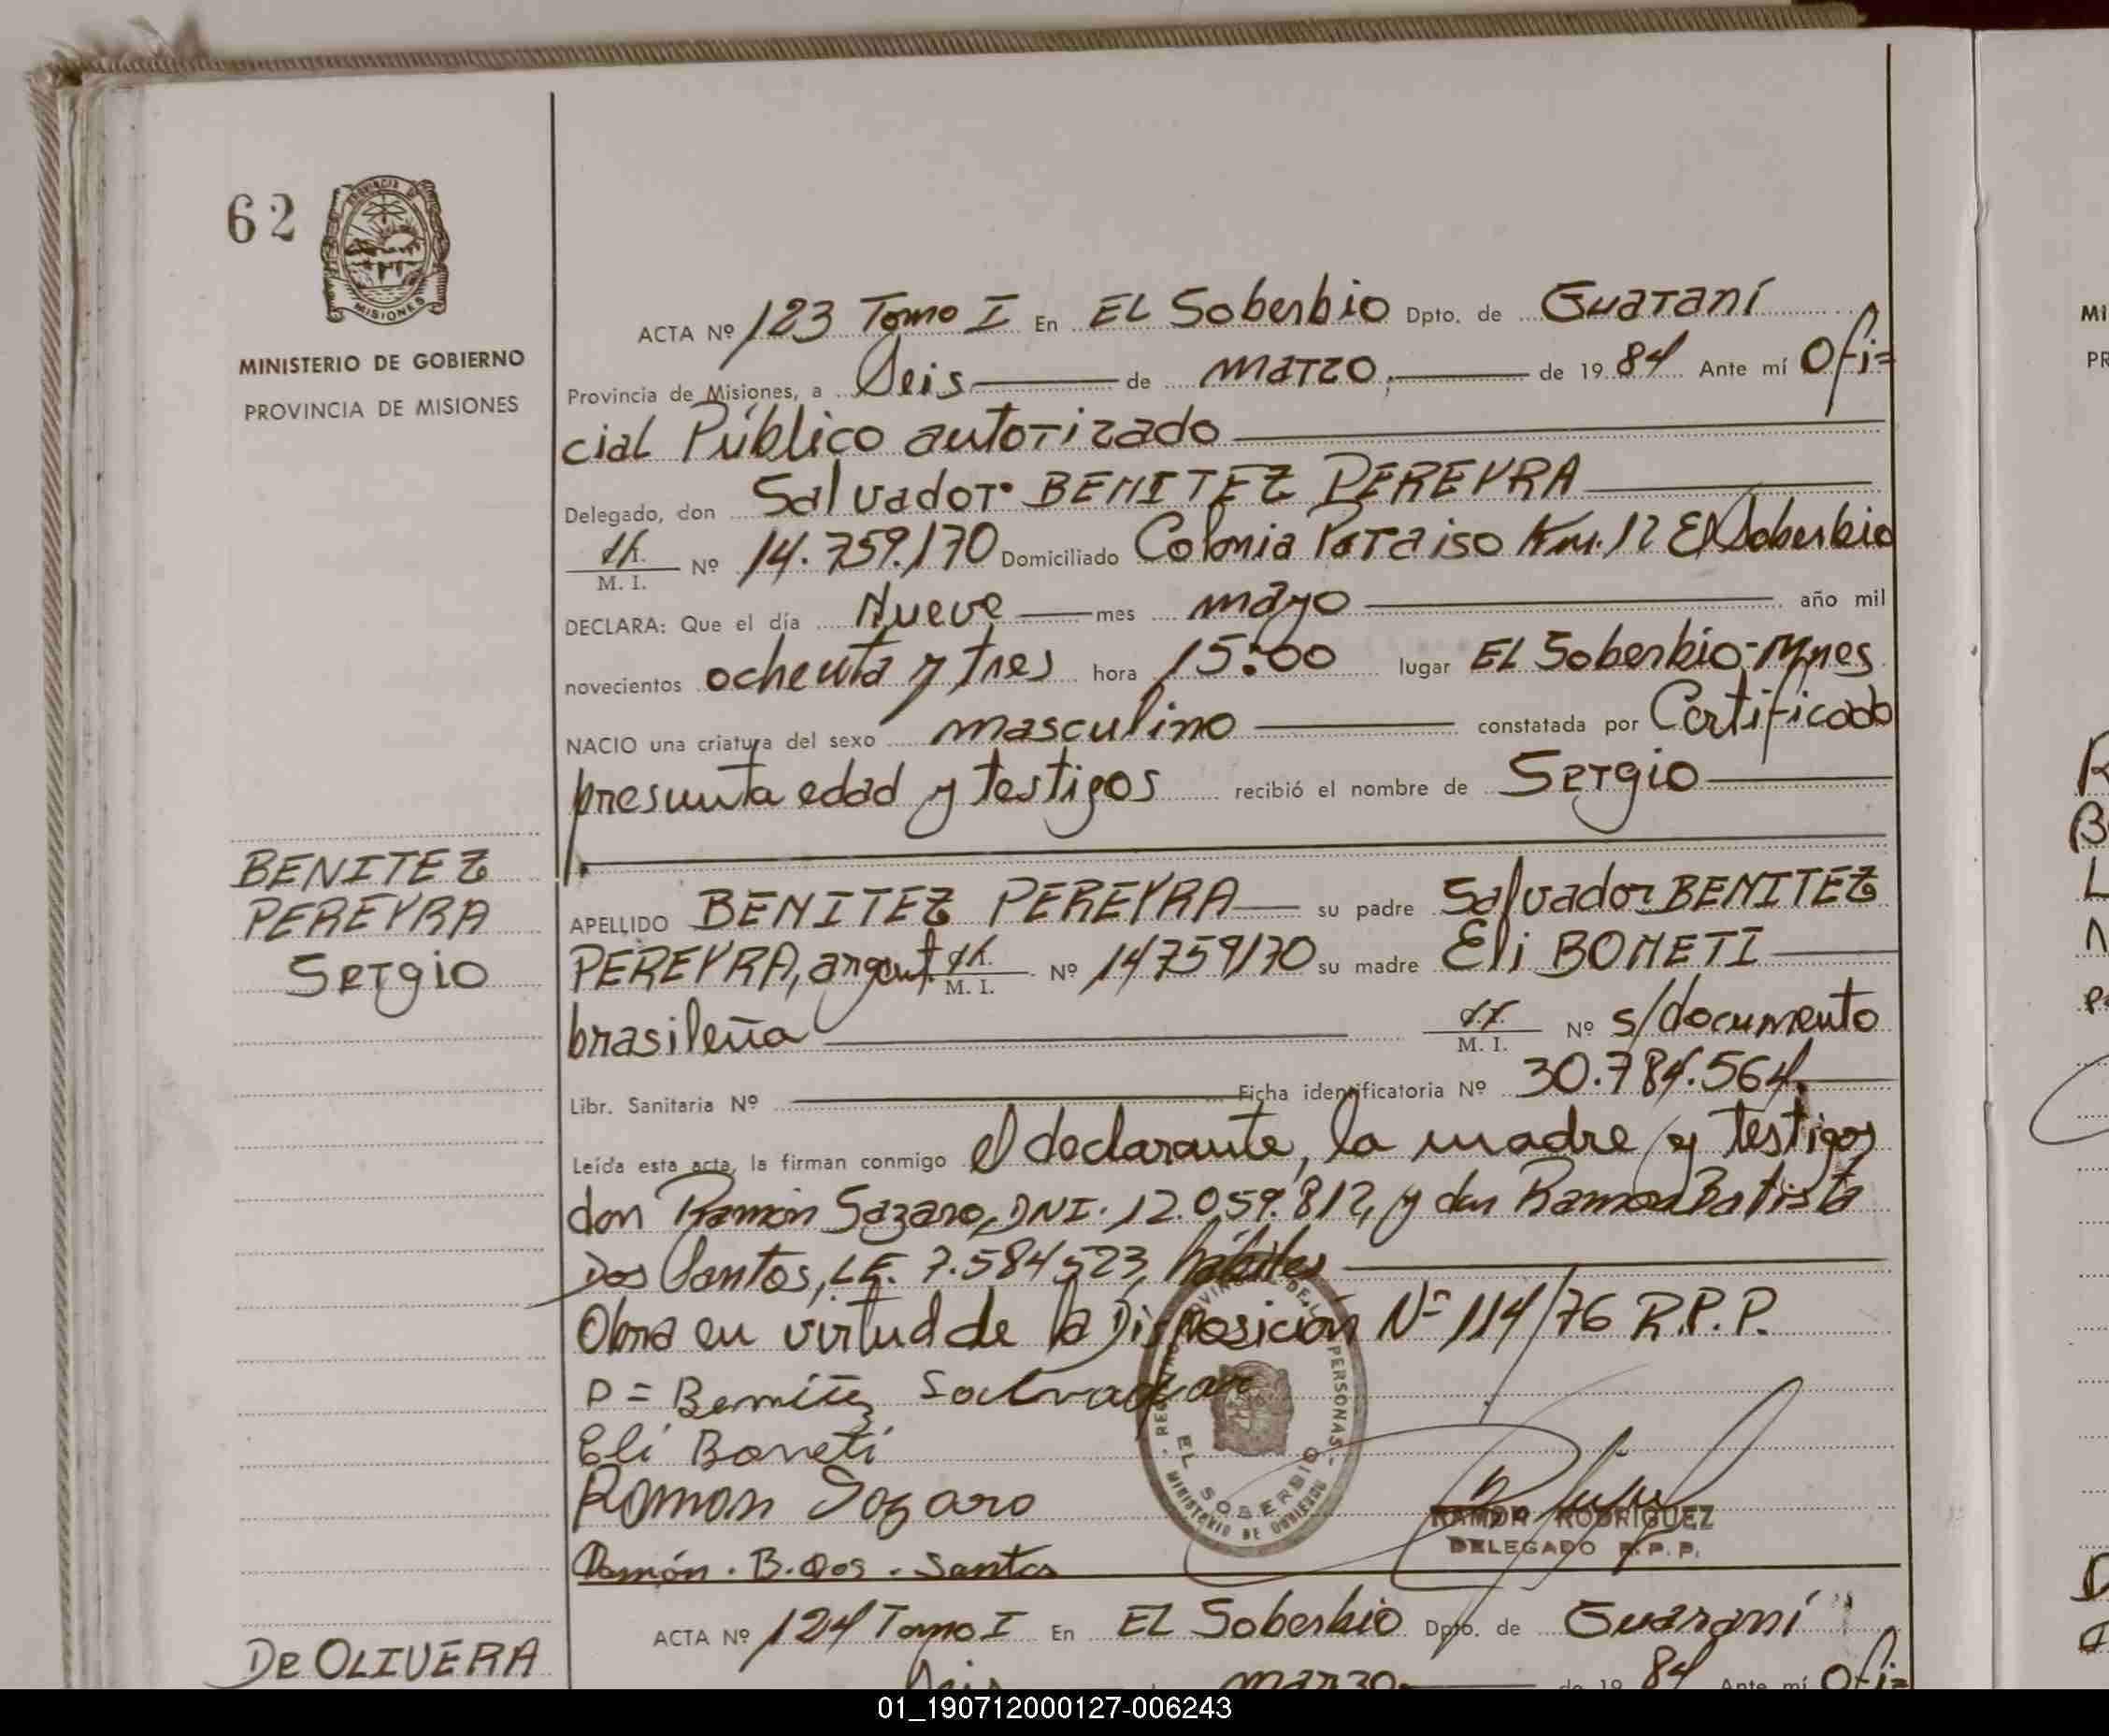 62
PROVINCIA DE
MISIONES
MINISTERIO DE GOBIERNO
PROVINCIA DE MISIONES
ACTA Nº 123 Tomo I En EL Soberbio Dpto. de Guaraní
Provincia de Misiones, a Seis de marzo, de 19 84 Ante mí Ofi=
cial Público autorizado
Delegado, don Salvador BENITEZ PEREYRA
M. I. Nº 14.759.170 Domiciliado Colonia Paraiso Km. 12 El Soberbio
DECLARA: Que el día Nueve mes mayo año mil
novecientos ochenta y tres hora 15:00 lugar EL Soberbio-Mnes
NACIO una criatura del sexo masculino constatada por Certificado
presunta edad y testigos recibió el nombre de Sergio
BENITEZ
PEREYRA
Sergio
APELLIDO BENITEZ PEREYRA su padre Salvador BENITEZ
PEREYRA, argent. M. I. Nº 14759170 su madre Eli BONETI
brasileña M. I. Nº s/documento
Libr. Sanitaria Nº Ficha identificatoria Nº 30.784.564.
Leída esta acta, la firman conmigo el declarante, la madre y testigos
don Ramón Sazaro, DNI. 12.059.812, y don Ramon Batista
Dos Santos, LE. 7.584523, hábiles
Obra en virtud de la Disposición Nº 114/76 R.P.P.
P = Benitez Salvador
Eli Boneti
Ramon Sozaro
Ramón . B. Dos . Santos
EL SOBERBIO
MINISTERIO DE GOBIERNO
RAMON RODRIGUEZ
DELEGADO R.P.P.
ACTA Nº 124 Tomo I En EL Soberbio Dpto. de Guaraní
De OLIVERA
Seis marzo de 19 84 Ante mí Ofi=
MI
PR
01_190712000127-006243